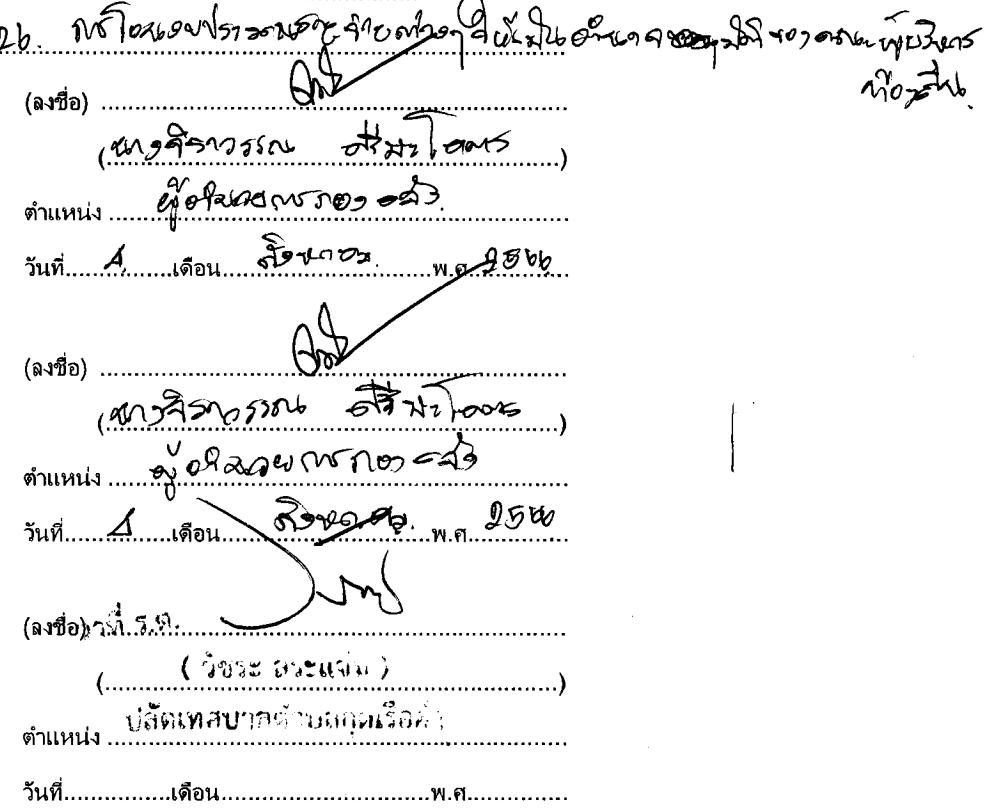 26. การโอนงบประมาณรายจ่ายต่างๆ ให้เป็นอำนาจอนุมัติของคณะผู้บริหาร
ท้องถิ่น
(ลงชื่อ)
(นางจิราวรรณ ศรีมะโคตร)
ตำแหน่ง ผู้อำนวยการกองคลัง
วันที่ 4 เดือน สิงหาคม พ.ศ. 2566
(ลงชื่อ)
(นางจิราวรรณ ศรีมะโคตร)
ตำแหน่ง ผู้อำนวยการกองคลัง
วันที่ 4 เดือน สิงหาคม พ.ศ. 2566
(ลงชื่อ) ว่าที่ ร.ต.
( วัชระ สระแจ่ม )
ตำแหน่ง ปลัดเทศบาลตำบลกุดเรือคำ
วันที่ เดือน พ.ศ.